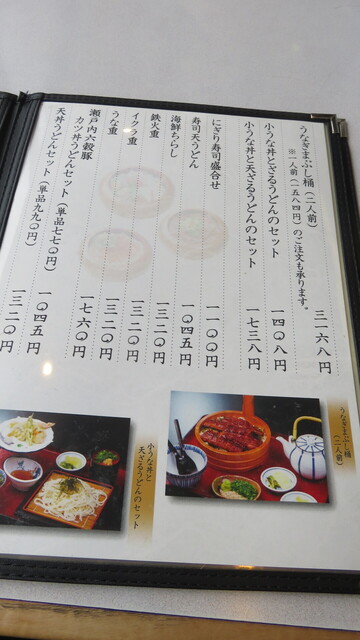 うなぎまぶし桶(二人前) 三一六八円
※一人前(一五八四円)のご注文も承ります。
小うな丼とざるうどんのセット 一四〇八円
小うな丼と天ざるうどんのセット 一七三八円
にぎり寿司盛合せ 一一〇〇円
寿司天うどん 一〇四五円
海鮮ちらし 一三二〇円
鉄火重 一三二〇円
イクラ重 一三二〇円
うな重 一七六〇円
瀬戸内六穀豚
カツ丼うどんセット(単品七七〇円) 一〇四五円
天丼うどんセット(単品九九〇円) 一三二〇円
うなぎまぶし桶
(二人前)
小うな丼と
天ざるうどんのセット